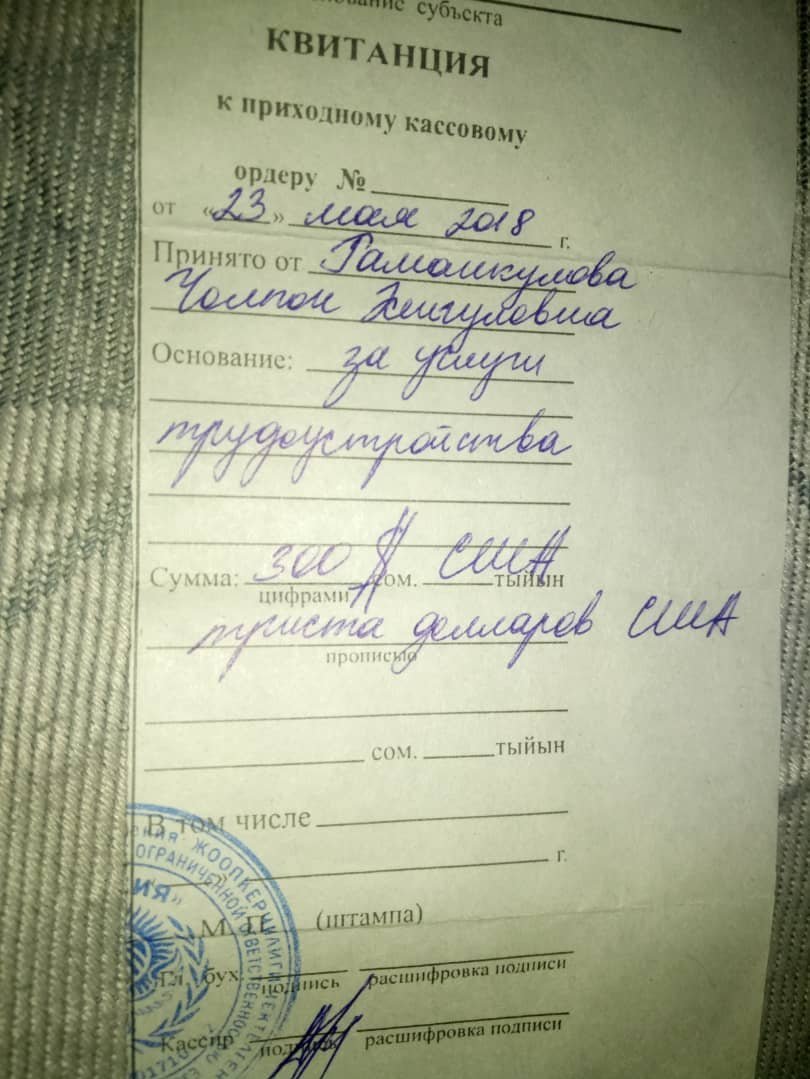 субъекта
КВИТАНЦИЯ
к приходному кассовому
ордеру №
от «23» мая 2018 г.
Принято от Рамашкулова
Чолпон
Основание: за услуги
трудоустройства
Сумма: 300 $ сом. США тыйын
цифрами
триста долларов США
прописью
сом. тыйын
В том числе
г.
ЖООПКЕРЧИЛИГИ ЧЕКТЕЛГЕН
ОГРАНИЧЕННОЙ ОТВЕТСТВЕННОС
М. П. (штампа)
Гл. бух.
подпись расшифровка подписи
Кассир
подпись расшифровка подписи